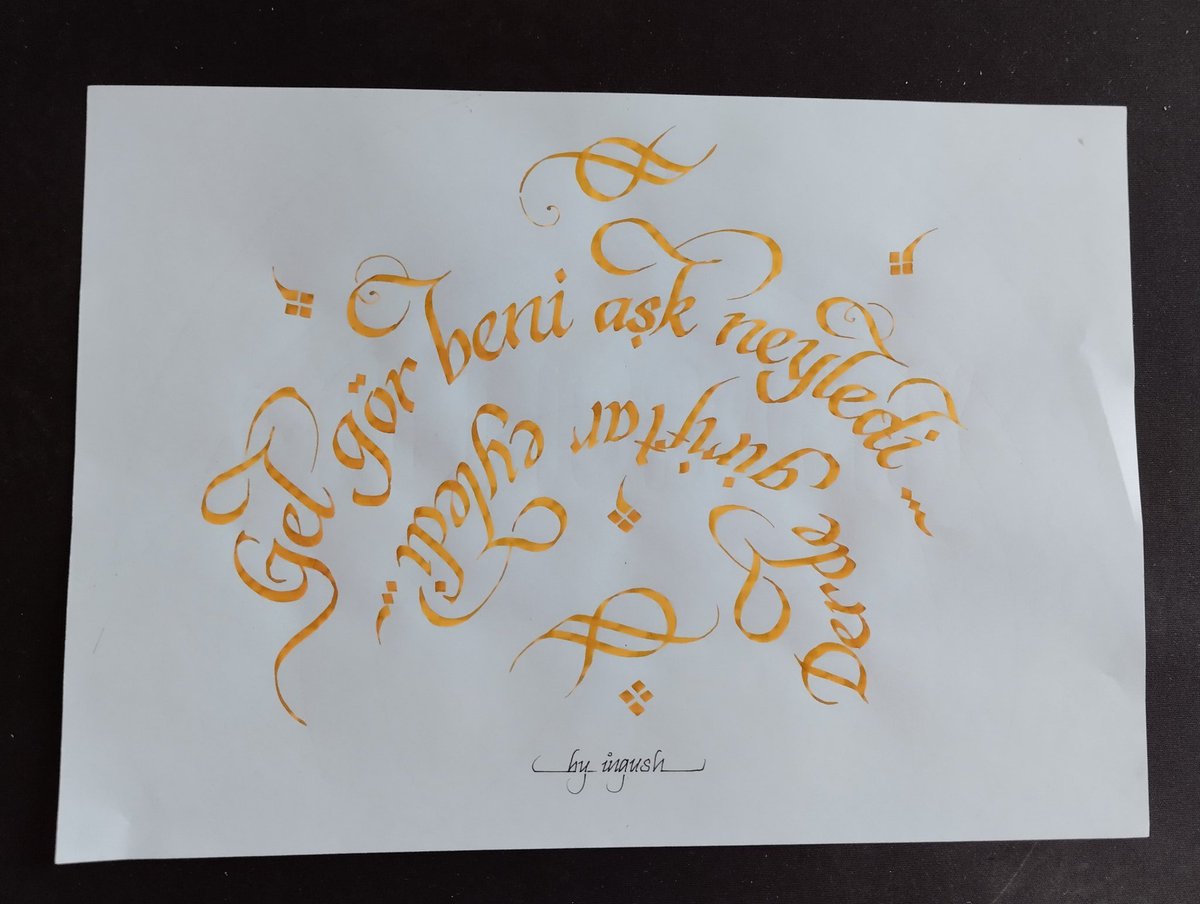 Gel gör beni aşk neyledi...
Derde giriftar eyledi...
by ingush